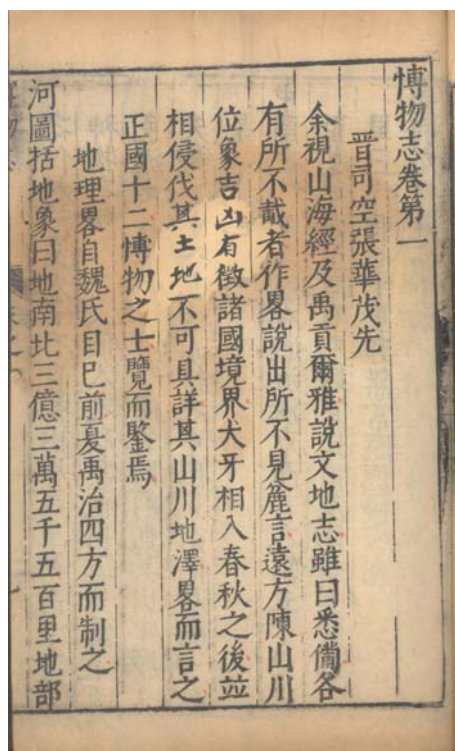 博物志卷第一
晋司空張華茂先
余視山海經及禹貢爾雅說文地志雖曰悉備各
有所不載者作畧說出所不見麄言遠方陳山川
位象吉凶有徵諸國境界犬牙相入春秋之後並
相侵伐其土地不可具詳其山川地澤畧而言之
正國十二博物之士覽而鑒焉
地理畧自魏氏目已前夏禹治四方而制之
河圖括地象曰地南北三億三萬五千五百里地部